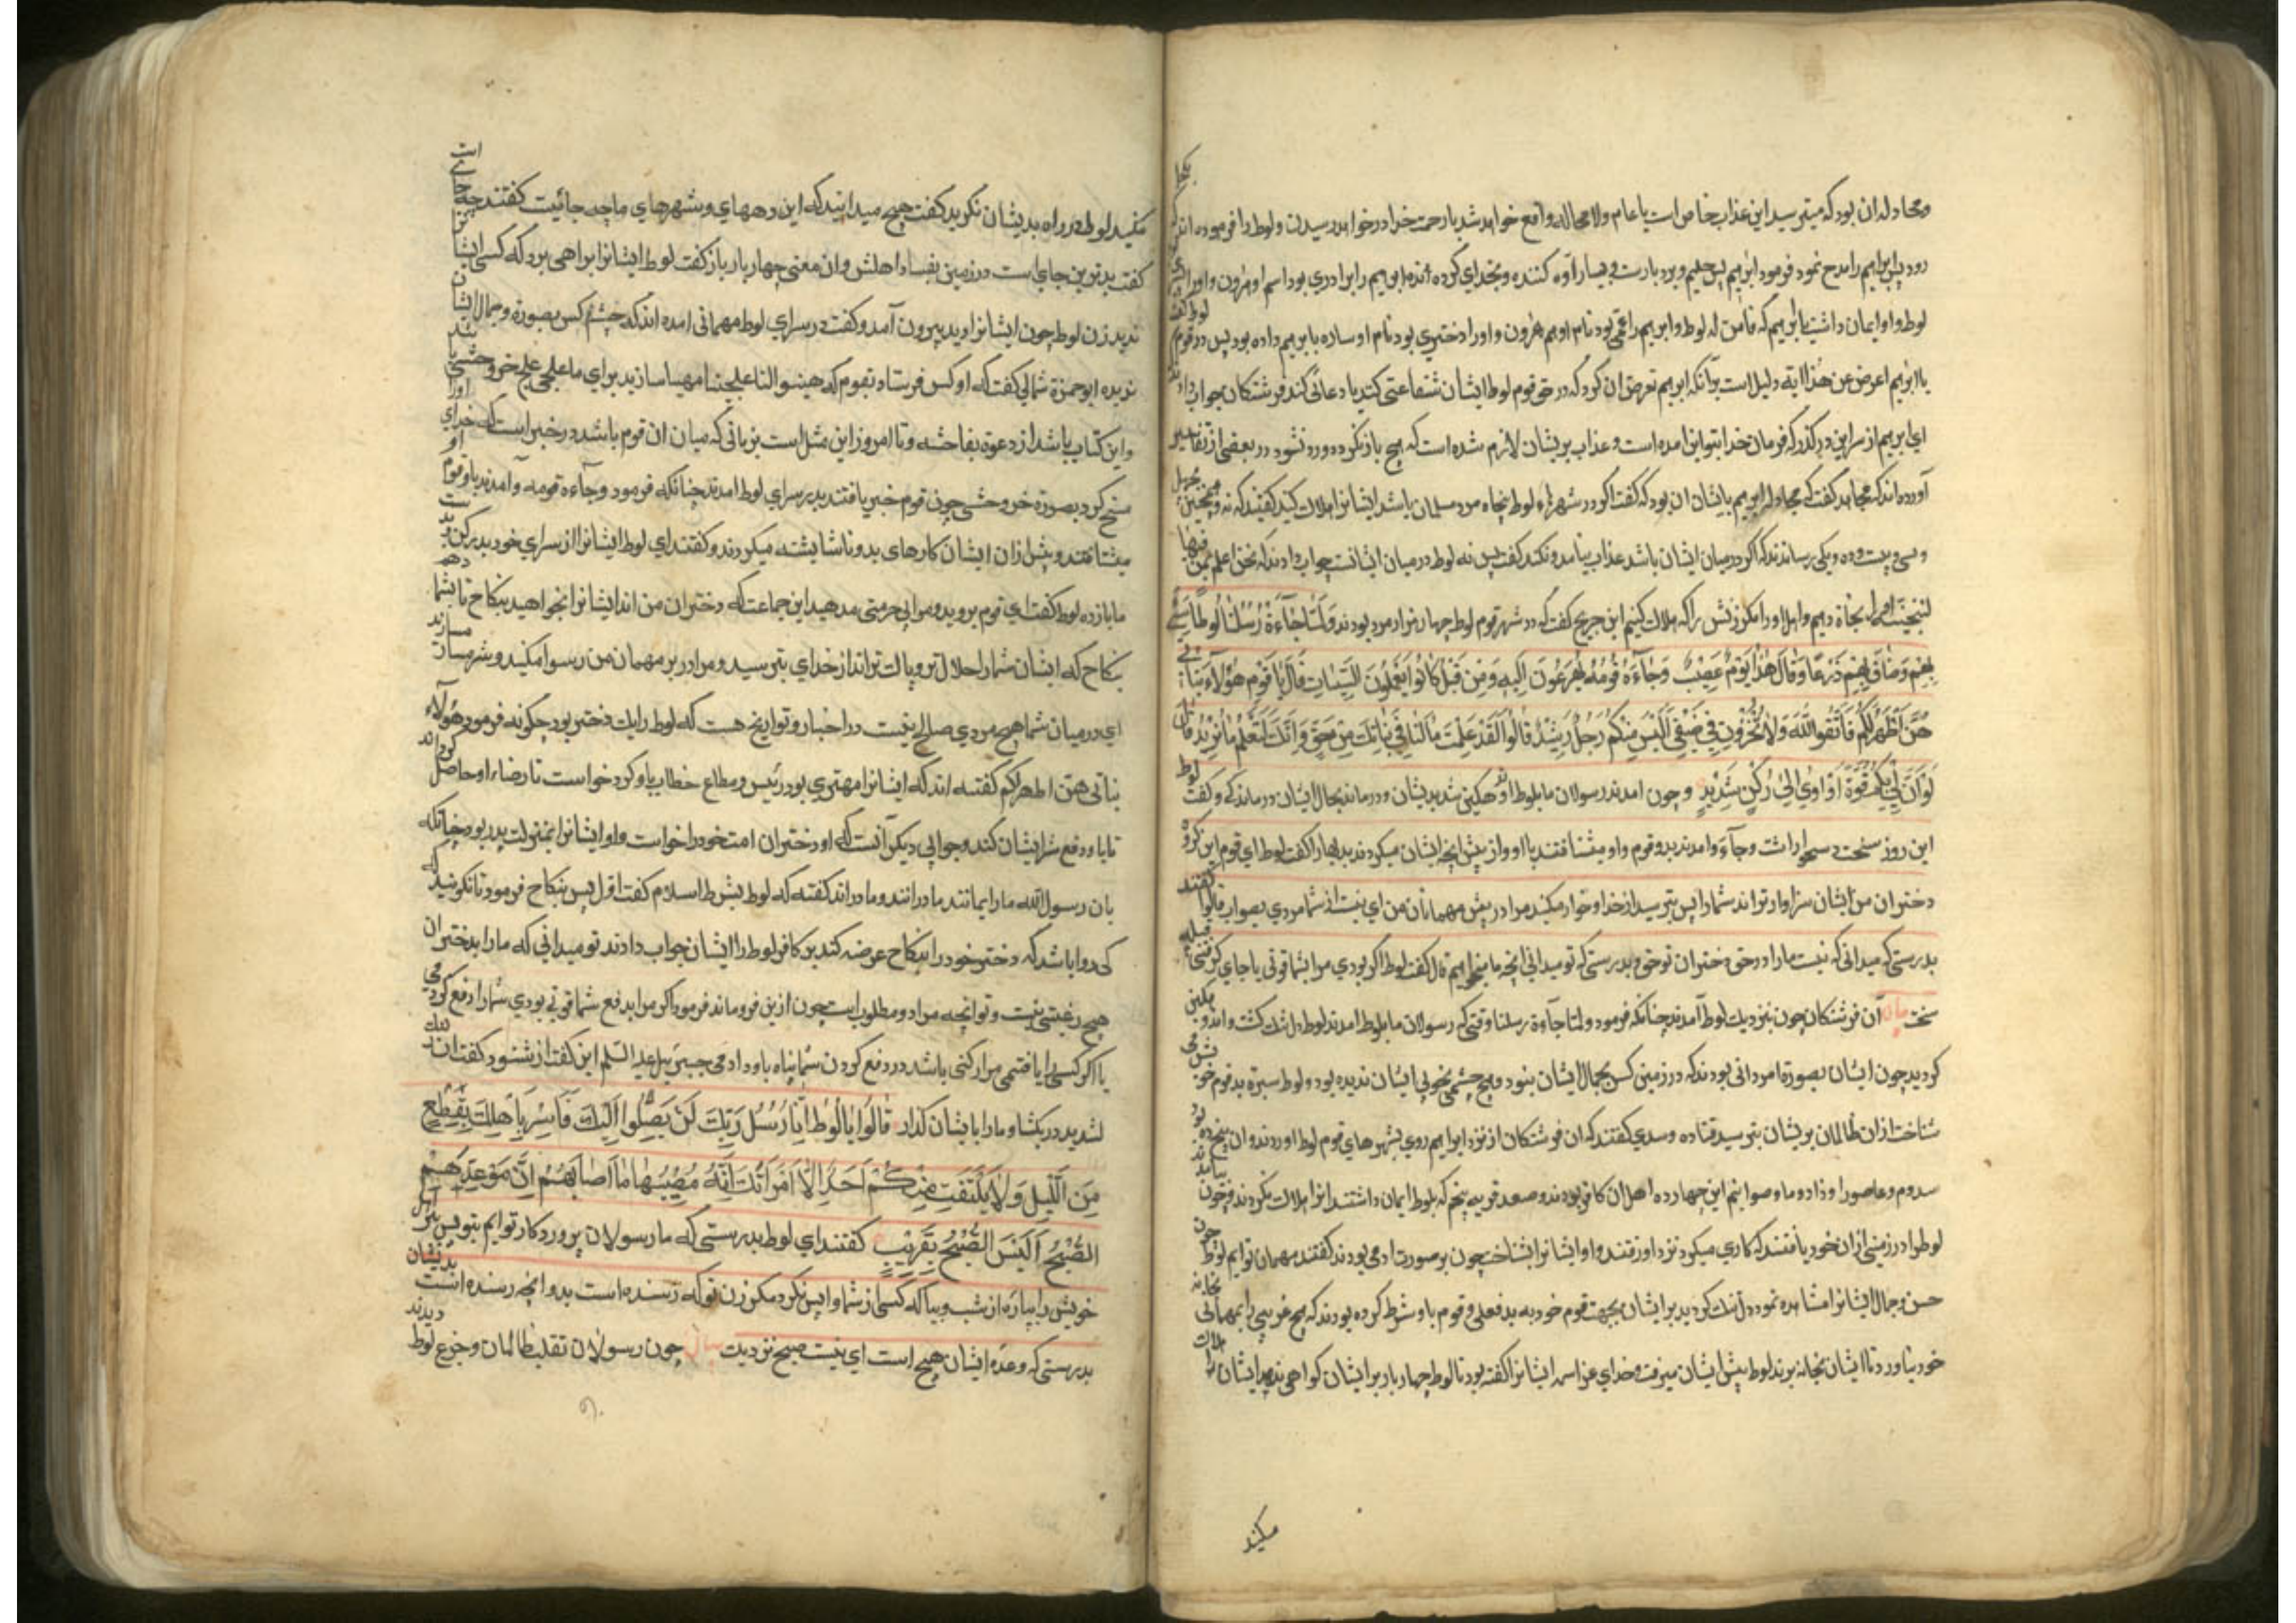 ومجادله ان بود که میپرسید این عذاب خاص است یا عام ولا محاله واقع خواهد شد یا رحمت خدا در خواهد رسیدن و لوط را فرموده اند
رود پس ابراهیم را مدح نمود فرمود ابرهیم پس حلیم و بردبارست و بسیار آوه کننده و بخدای کرده اند ابرهیم را برادری بود اسم او هرون و اورا
لوط و او ایمان داشت بابرهیم که فامن له لوط و ابرهیم را عمی بود نام او هم هرون و اورا دختری بود نام او ساره بابرهیم داده بود پس در قوم
یا ابرهیم اعرض عن هذا ایة دلیل است برآنکه ابرهیم تعرض ان کرد که در حق قوم لوط ایشان شفاعتی کند یا دعائی کند فرشتکان جواب داد
ای ابرهیم از سر این در کذر که فرمان خدا بتو این امده است و عذاب بریشان لازم شده است که هیچ باز نکردد و رد نشود در بعضی از تفاسیر
آورده اند که مجاهد کفت که مجادله ابرهیم بایشان ان بود که کفت اکر در شهرهاء لوط پنجاه مرد مسلمان باشد ایشانرا هلاک کنید کفتند که نه همچنین چهل
و سی و بیست و ده و یکی رساندند که اکر در میان ایشان باشد عذاب نیامد و نکند کفت پس نه لوط در میان ایشانست جواب دادند که نحن اعلم بمن فیها
لننجینه اورا نجاة دهیم و اهل اورا مکر زنش را که هلاک کنیم ابن جریح کفت که در شهر قوم لوط چهار هزار مرد بودند وَلَمَّا جَاءَتْ رُسُلُنَا لُوطًا سِيءَ
بِهِمْ وَضَاقَ بِهِمْ ذَرْعًا وَقَالَ هٰذَا يَوْمٌ عَصِيبٌ وَجَاءَهُ قَوْمُهُ يُهْرَعُونَ اِلَيْهِ وَمِنْ قَبْلُ كَانُوا يَعْمَلُونَ السَّيِّئَاتِ قَالَ يَا قَوْمِ هٰؤُلَاءِ بَنَاتِي
هُنَّ اَطْهَرُ لَكُمْ فَاتَّقُوا اللّٰهَ وَلَا تُخْزُونِ فِي ضَيْفِي اَلَيْسَ مِنْكُمْ رَجُلٌ رَشِيدٌ قَالُوا لَقَدْ عَلِمْتَ مَا لَنَا فِي بَنَاتِكَ مِنْ حَقٍّ وَاِنَّكَ لَتَعْلَمُ مَا نُرِيدُ قَالَ
لَوْ اَنَّ لِي بِكُمْ قُوَّةً اَوْ اٰوِي اِلٰى رُكْنٍ شَدِيدٍ و چون امدند رسولان ما بلوط اندوهکین شد بدیشان و درماند بحال ایشان در ماندکی و کفت لوط
این روز سختست دشوار است وجآءه و امدند بدو قوم او میشتافتند باو و از پیش انچه ایشان میکردند بدیها را کفت لوط ای قوم این کروه
دختران من ایشان سزاوارترند شما را پس بترسید از خدا و خوار مکنید مرا در پیش مهمانان من ای نیست از شما مردی بصواب قالوا کفتند
بدرستی که میدانی که نیست مارا در حق دختران تو حق و بدرستی که تو میدانی انچه ما میخواهیم قال کفت لوط اکر بودی مرا بشما قوتی یا جای کرفتمی بقبیله
سخت بیان آن فرشتکان چون بنزدیک لوط آمدند چنانکه فرمود ولما جاءت رسلنا وقتی که رسولان ما بلوط امدند لوط دل تنک کشت و اندوهکین
کردید چون ایشان بصورة امردانی بودند که در زمین کس بجمال ایشان نبود و هیچ چشمی بخوبی ایشان ندیده بود و لوط سیرة بد قوم خویش می
شناخت از ان ظالمان بریشان بترسید قتاده و سدی کفتند که ان فرشتکان از نزد ابراهیم روی بشهرهای قوم لوط اوردند و ان پنج ده بود
سدوم و عاصورا و ذادوما و صوابیم این چهار ده اهل ان کافر بودند و صعد قریه پنجم که بلوط ایمان داشتند انرا هلاک نکردند و چون بیامدند
لوط را در زمینی از ان خود یافتند که کاری میکرد نزد او رفتند و او ایشانرا نشناخت چون بر صورت ادمی بودند کفتند مهمان توایم لوط چون
حسن و جمال ایشانرا مشاهده نمود دل تنک کردید بر ایشان بجهت قوم خود به بد فعلی و قوم با و شرط کرده بودند که هیچ غریبی را بمهمانی بخانه
خود نیاورد تا ایشان بخانه برند لوط پیش ایشان میرفت و خدای عز اسمه ایشانرا کفته بود تا لوط چهار بار بر ایشان کواهی ندهد ایشانرا هلاک
مکنید
مکنید لوط در راه بدیشان نکرید کفت هیچ میدانید که این دههای و شهرهای ما چه جائیست کفتند چه جای است
کفت بدترین جای است در زمین بفساد اهلش و ان معنی چهار بار باز کفت لوط ایشانرا براهی برد که کسی ایشانرا
ندید زن لوط چون ایشانرا دید بیرون آمد و کفت در سرای لوط مهمانی امده اند که چشم کس بصورة و جمال ایشان
ندیده ابو حمزة ثمالی کفت که او کس فرستاد بقوم که هیئوا لنا علجنا مهیا سازید برای ما علجی علج خر وحشی باشد
و این کنایت باشد از دعوة بفاحشه و تا امروز این مثل است بزبانی که میان ان قوم باشد در خبر است که خدای اورا
مسخ کرد بصورة خر وحشی چون قوم خبر یافتند بدر سرای لوط امدند چنانکه فرمود وجاءه قومه و آمدند باو قوم او
میشتافتند و پیش ازان ایشان کارهای بد و ناشایسته میکردند و کفتند ای لوط ایشانرا از سرای خود بدر کن و بدست
ما باز ده لوط کفت ای قوم بروید و مرا بی حرمتی مدهید این جماعت که دختران من اند ایشانرا بخواهید بنکاح تا بشما دهم
بنکاح که ایشان شما را حلال تر و پاک تر اند از خدای بترسید و مرا در بر مهمان من رسوا مکنید و شرمسار مسازند
ای در میان شما هیچ مردی صالح نیست در اخبار و تواریخ هست که لوط را یک دختر بود چکونه فرمود هؤلاء
بناتی هن اطهر لکم کفته اند که ایشانرا مهتری بود رئیس و مطاع خطاب باو کرد خواست تا رضاء او حاصل کرداند
تا با و دفع شر ایشان کند و جوابی دیکر آنست که او دختران امت خود را خواست و او ایشانرا بمنزلت پدر بود چنانکه
بان رسول الله ما را بمانند مادرانند و مادر اند کفته که لوط بشرط اسلام کفت اول پس بنکاح فرمود تا نکوئید که
کی روا باشد که دختر خود را بنکاح عرضه کند بر کافر لوط را ایشان جواب دادند تو میدانی که ما را بدختران
هیچ رغبتی نیست و تو انچه مراد و مطلوبست چون ازین فرو ماند فرمود اکر مرا بدفع شما قوتی بودی شما را دفع کردمی
یا اکر کسی را یافتمی مرا رکنی باشد در دفع کردن شما پناه باو دادمی جبرئیل علیه السلم این کفت از شنود کفت ان رکنک
لشدید در بکشا و ما را با ایشان کذار قَالُوا يَا لُوطُ اِنَّا رُسُلُ رَبِّكَ لَنْ يَصِلُوا اِلَيْكَ فَاَسْرِ بِاَهْلِكَ بِقِطْعٍ
مِنَ اللَّيْلِ وَلَا يَلْتَفِتْ مِنْكُمْ اَحَدٌ اِلَّا امْرَاَتَكَ اِنَّهُ مُصِيبُهَا مَا اَصَابَهُمْ اِنَّ مَوْعِدَهُمُ
الصُّبْحُ اَلَيْسَ الصُّبْحُ بِقَرِيبٍ کفتند ای لوط بدرستی که ما رسولان پروردکار توایم بتو پس ببر اهل
خویش را بپاره از شب و بیاکه کسی از شما واپس نکرد مکر زن تو که رسنده است بدو انچه رسنده است بدیشان
بدرستی که وعده ایشان صبح است ای نیست صبح نزدیک بیان چون رسولان تقلب ظالمان و جزع لوط دیدند